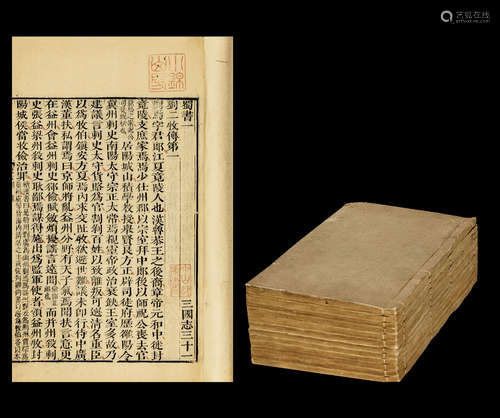 艺狐在线
artfoxlive.com
蜀書一 三國志三十一
劉二牧傳第一
焉字君郎江夏竟陵人也漢魯恭王之後裔章帝元和中徙封
竟陵支庶家焉焉少仕州郡以宗室拜中郎後以師祝公喪去官
居陽城山積學教授舉賢良方正辟司徒府歷雒陽令
冀州刺史南陽太守宗正太常焉覩靈帝政治衰缺王室多故乃
建議言刺史太守貨賂爲官割剥百姓以致離叛可選清名重臣
以爲牧伯鎮安方夏焉內求交阯牧欲避世難議未即行侍中廣
漢董扶私謂焉曰京師將亂益州分野有天子氣焉聞扶言意更
在益州會益州刺史郤儉賦斂煩擾謠言遠聞而并州殺刺
史張益梁州殺刺史耿鄙焉謀得施出爲監軍使者領益州牧封
陽城侯當收儉治罪